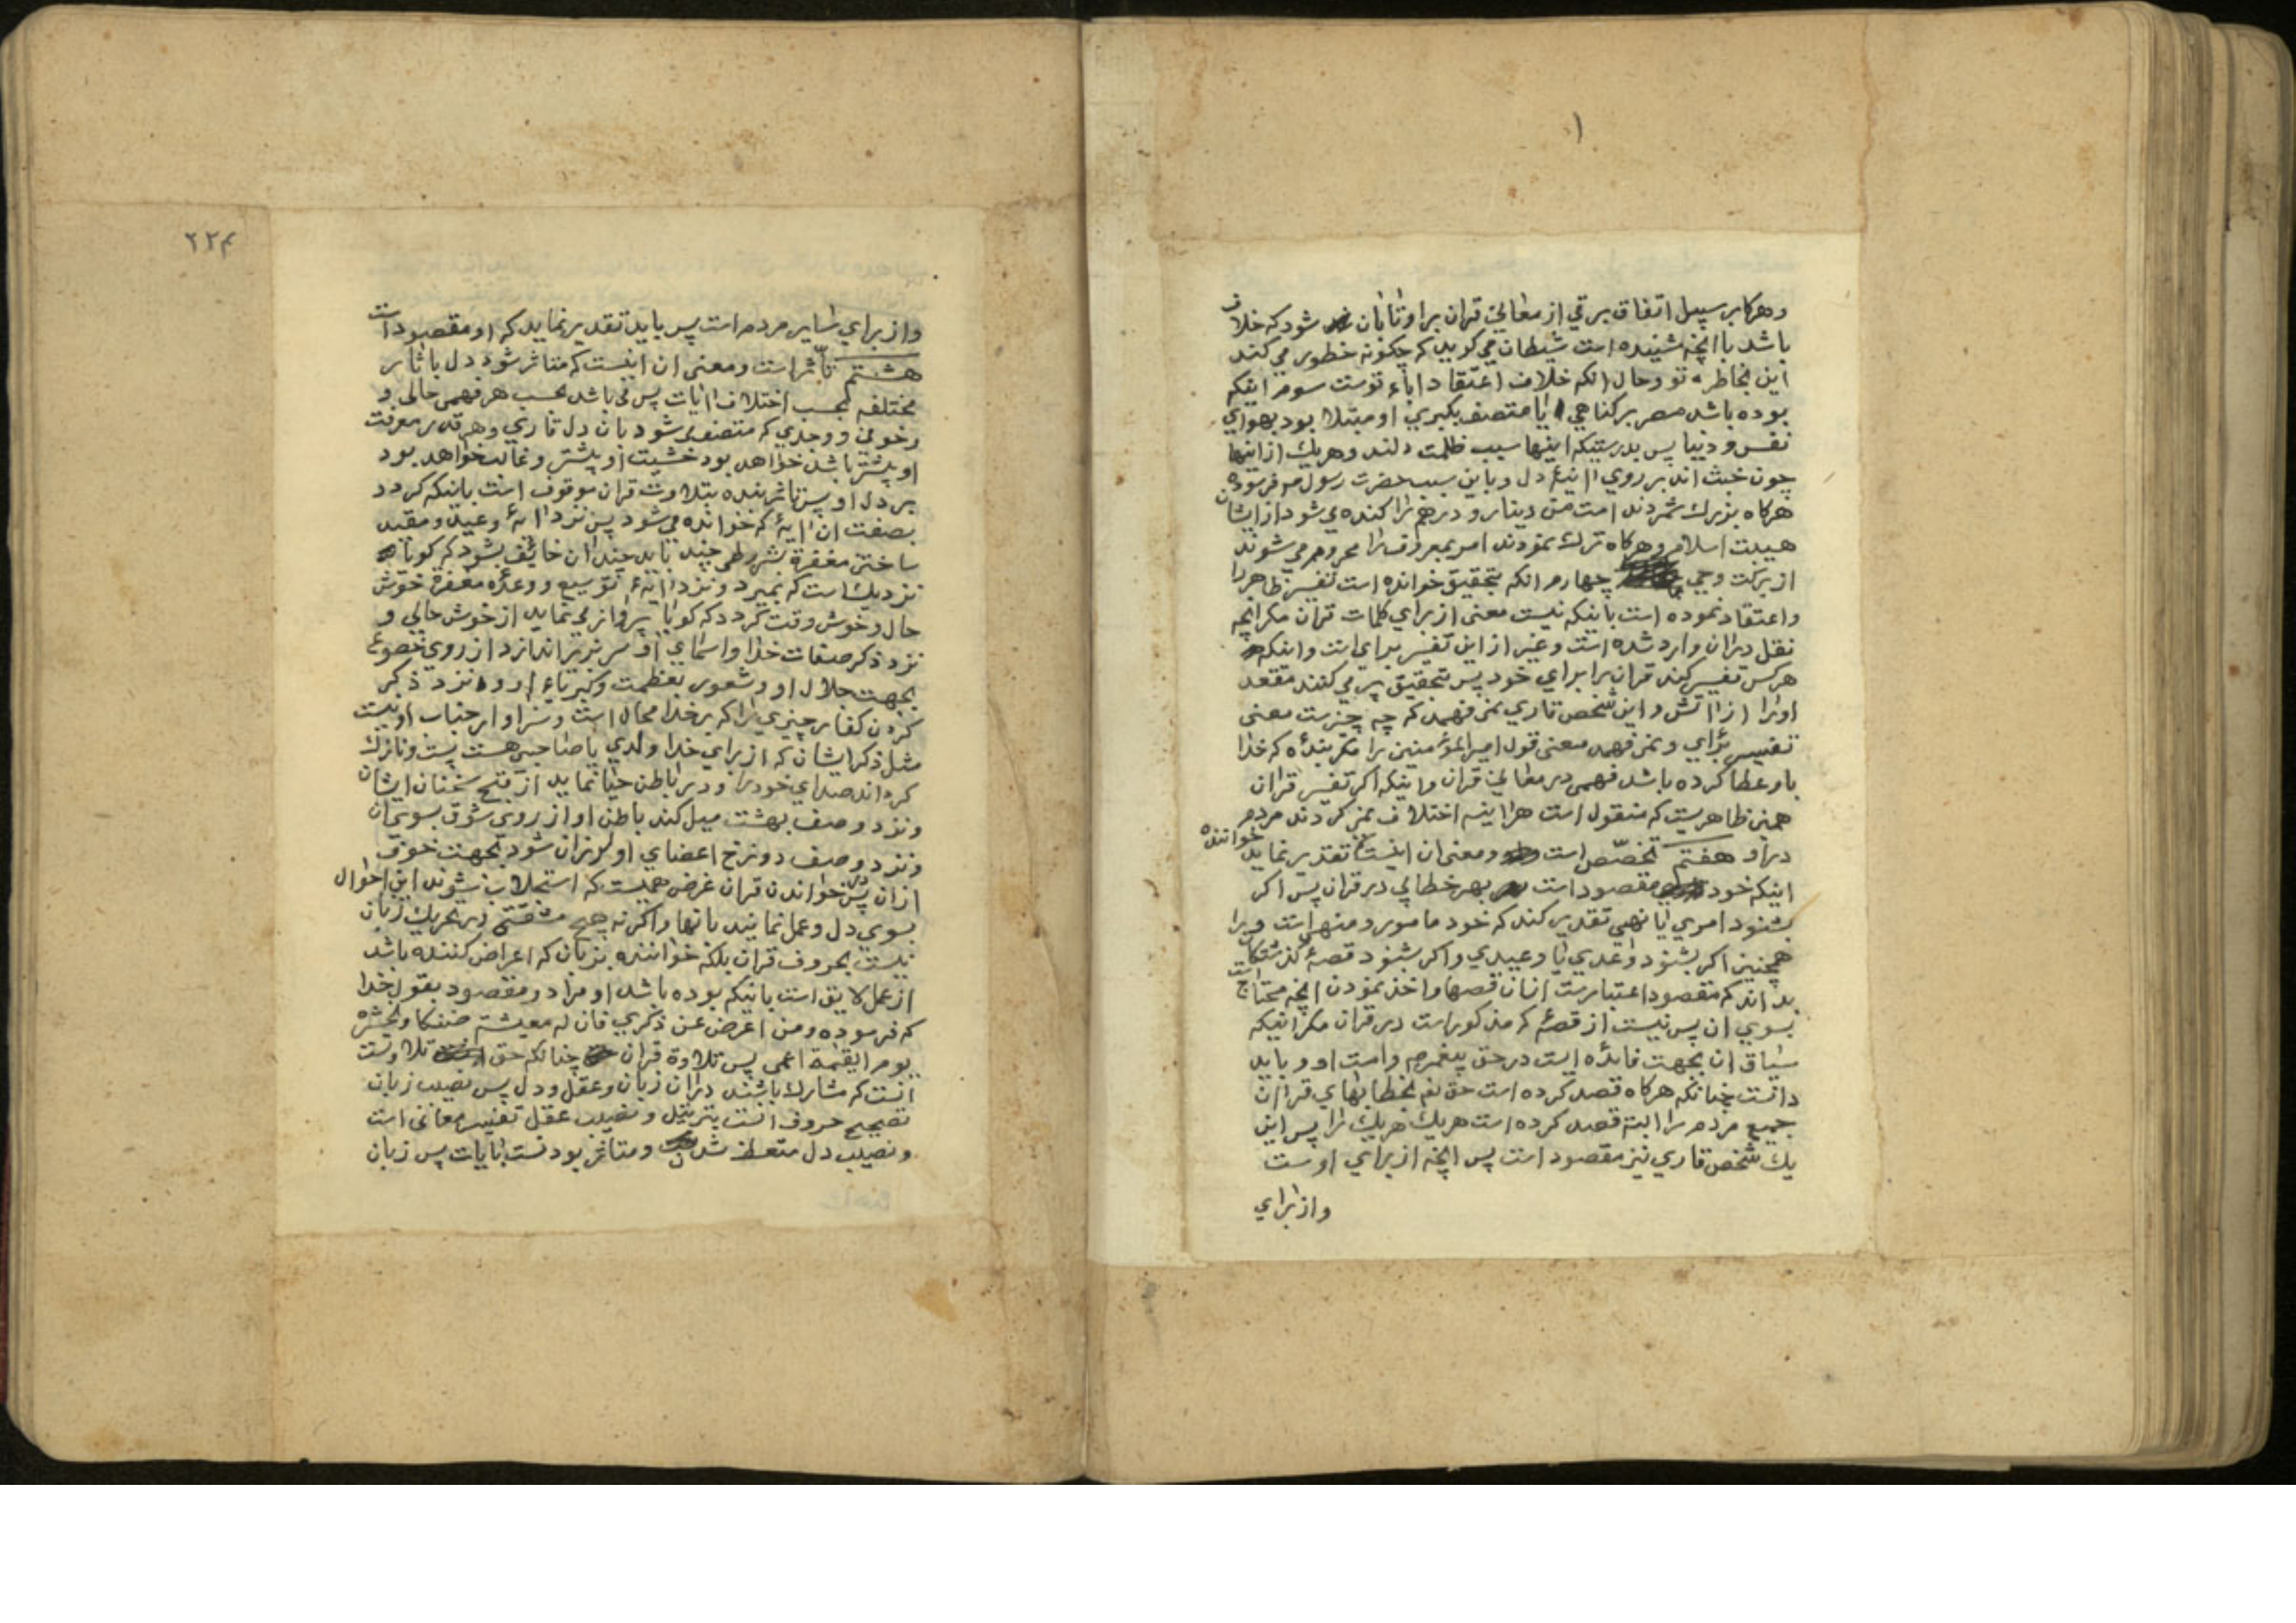 وهرکاه بر سبیل اتفاق برقی از معانی قران بر او تابان شود که خلاف
باشد با انچه شنیده است شیطان می کوید که چکونه خطور می کند
این بخاطر تو وحال انکه خلاف اعتقاد اباء توست سوم اینکه
بوده باشد مصر بر کناهی یا متصف بکبری او مبتلا بود بهوای
نفس و دنیا پس بدرستیکه اینها سبب ظلمت دلند وهریك از اینها
چون خبث اند بر روی اینهٔ دل و باین سبب حضرت رسول ص فرموده
هرکاه بزرك شمردند امت من دینار و درهم را کنده می شود از ایشان
هیبت اسلام وهرکاه ترك نمودند امر بمعروف را محروم می شوند
از برکت وحی چهارم انکه بتحقیق خوانده است تفسیر ظاهر را
واعتقاد نموده است باینکه نیست معنی از برای کلمات قران مکر انچه
نقل دران وارد شده است وغیر از این تفسیر برای است واینکه
هرکس تفسیر کند قران را برای خود پس بتحقیق پر می کنند مقعد
اورا از اتش واین شخص قاری نمی فهمد که چه چیزست معنی
تفسیر برای ونمی فهمد معنی قول امیرالمؤمنین را مکر بندهٔ که خدا
باو عطا کرده باشد فهمی در معانی قران واینکه اکر تفسیر قران
همین ظاهریست که منقول است هراینه اختلاف نمی کردند مردم
دراو هفتم تخصّص است ومعنی ان اینست که تقدیر نماید خواننده
اینکه خود مقصود است بهر خطابی در قران پس اکر
بشنود امری یا نهی تقدیر کند که خود مامور ومنهی است ویرا
همچنین اکر بشنود وعدی یا وعیدی واکر بشنود قصهٔ کذشتکان
بداند که مقصود اعتبارست ازان قصها واخذ نمودن انچه محتاج است
بسوی ان پس نیست از قصهٔ که مذکور است در قران مکر اینکه
سیاق ان بجهت فائدهٔ است در حق پیغمبر ص وامت او و باید
دانست چنانکه هرکاه قصد کرده است حق تع بخطابهای قران
جمیع مردم را البته قصد کرده است هریك هریك را پس این
یك شخص قاری نیز مقصود است پس انچه از برای اوست
واز برای
۲۲۴
واز برای سایر مردم است پس باید تقدیر نماید که او مقصود است
هشتم تأثّر است ومعنی ان اینست که متاثر شود دل باثار
مختلفه بحسب اختلاف ایات پس می باشد بحسب هر فهمی حالی و
وخوفی ووجدی که متصف شود بان دل قاری وهر قدر معرفت
او بیشتر باشد خواهد بود خشیت او بیشتر وغالب خواهد بود
بر دل او پس تاثر بنده بتلاوت قران موقوف است باینکه کردد
بصفت ان ایهٔ که خوانده می شود پس نزد ایهٔ وعید ومقید
ساختن مغفرة بشروطی چند باید چندان خائف بشود که کویا
نزدیك است که بمیرد ونزد ایهٔ توسیع ووعدهٔ مغفرة خوش
حال وخوش وقت کردد که کویا پرواز می نماید از خوش حالی و
نزد ذکر صفات خدا واسمای او سر بزیر اندازد از روی خضوع
بجهت جلال او وشعور بعظمت وکبریاء او ونزد ذکر
کردن کفار چیزی را که بر خدا محال است وسزاوار جناب او نیست
مثل ذکر ایشان که از برای خدا ولدی یا صاحبی هست پست ونازك
کرداند صدای خود را ودر باطن حیا نماید از قبح سخنان ایشان
ونزد وصف بهشت میل کند باطن او از روی شوق بسوی ان
ونزد وصف دوزخ اعضای او لرزان شود بجهت خوف
ازان پس در خواندن قران غرض همیست که استجلاب شوند این احوال
بسوی دل وعمل نمایند بانها واکر نه هیچ مشقتی در تحریك زبان
نیست بحروف قران بلکه خواننده بزبان که اعراض کننده باشد
از عمل لایق است باینکه بوده باشد او مراد ومقصود بقول خدا
که فرموده ومن اعرض عن ذکری فان له معیشة ضنکا ونحشره
یوم القیمة اعمی پس تلاوة قران چنانکه حق تلاوتست
انست که مشارك باشند دران زبان وعقل ودل پس نصیب زبان
تصحیح حروف است بترتیل ونصیب عقل تفسیر معانی است
ونصیب دل متعظ شدن ومتاثر بودنست بایات پس زبان